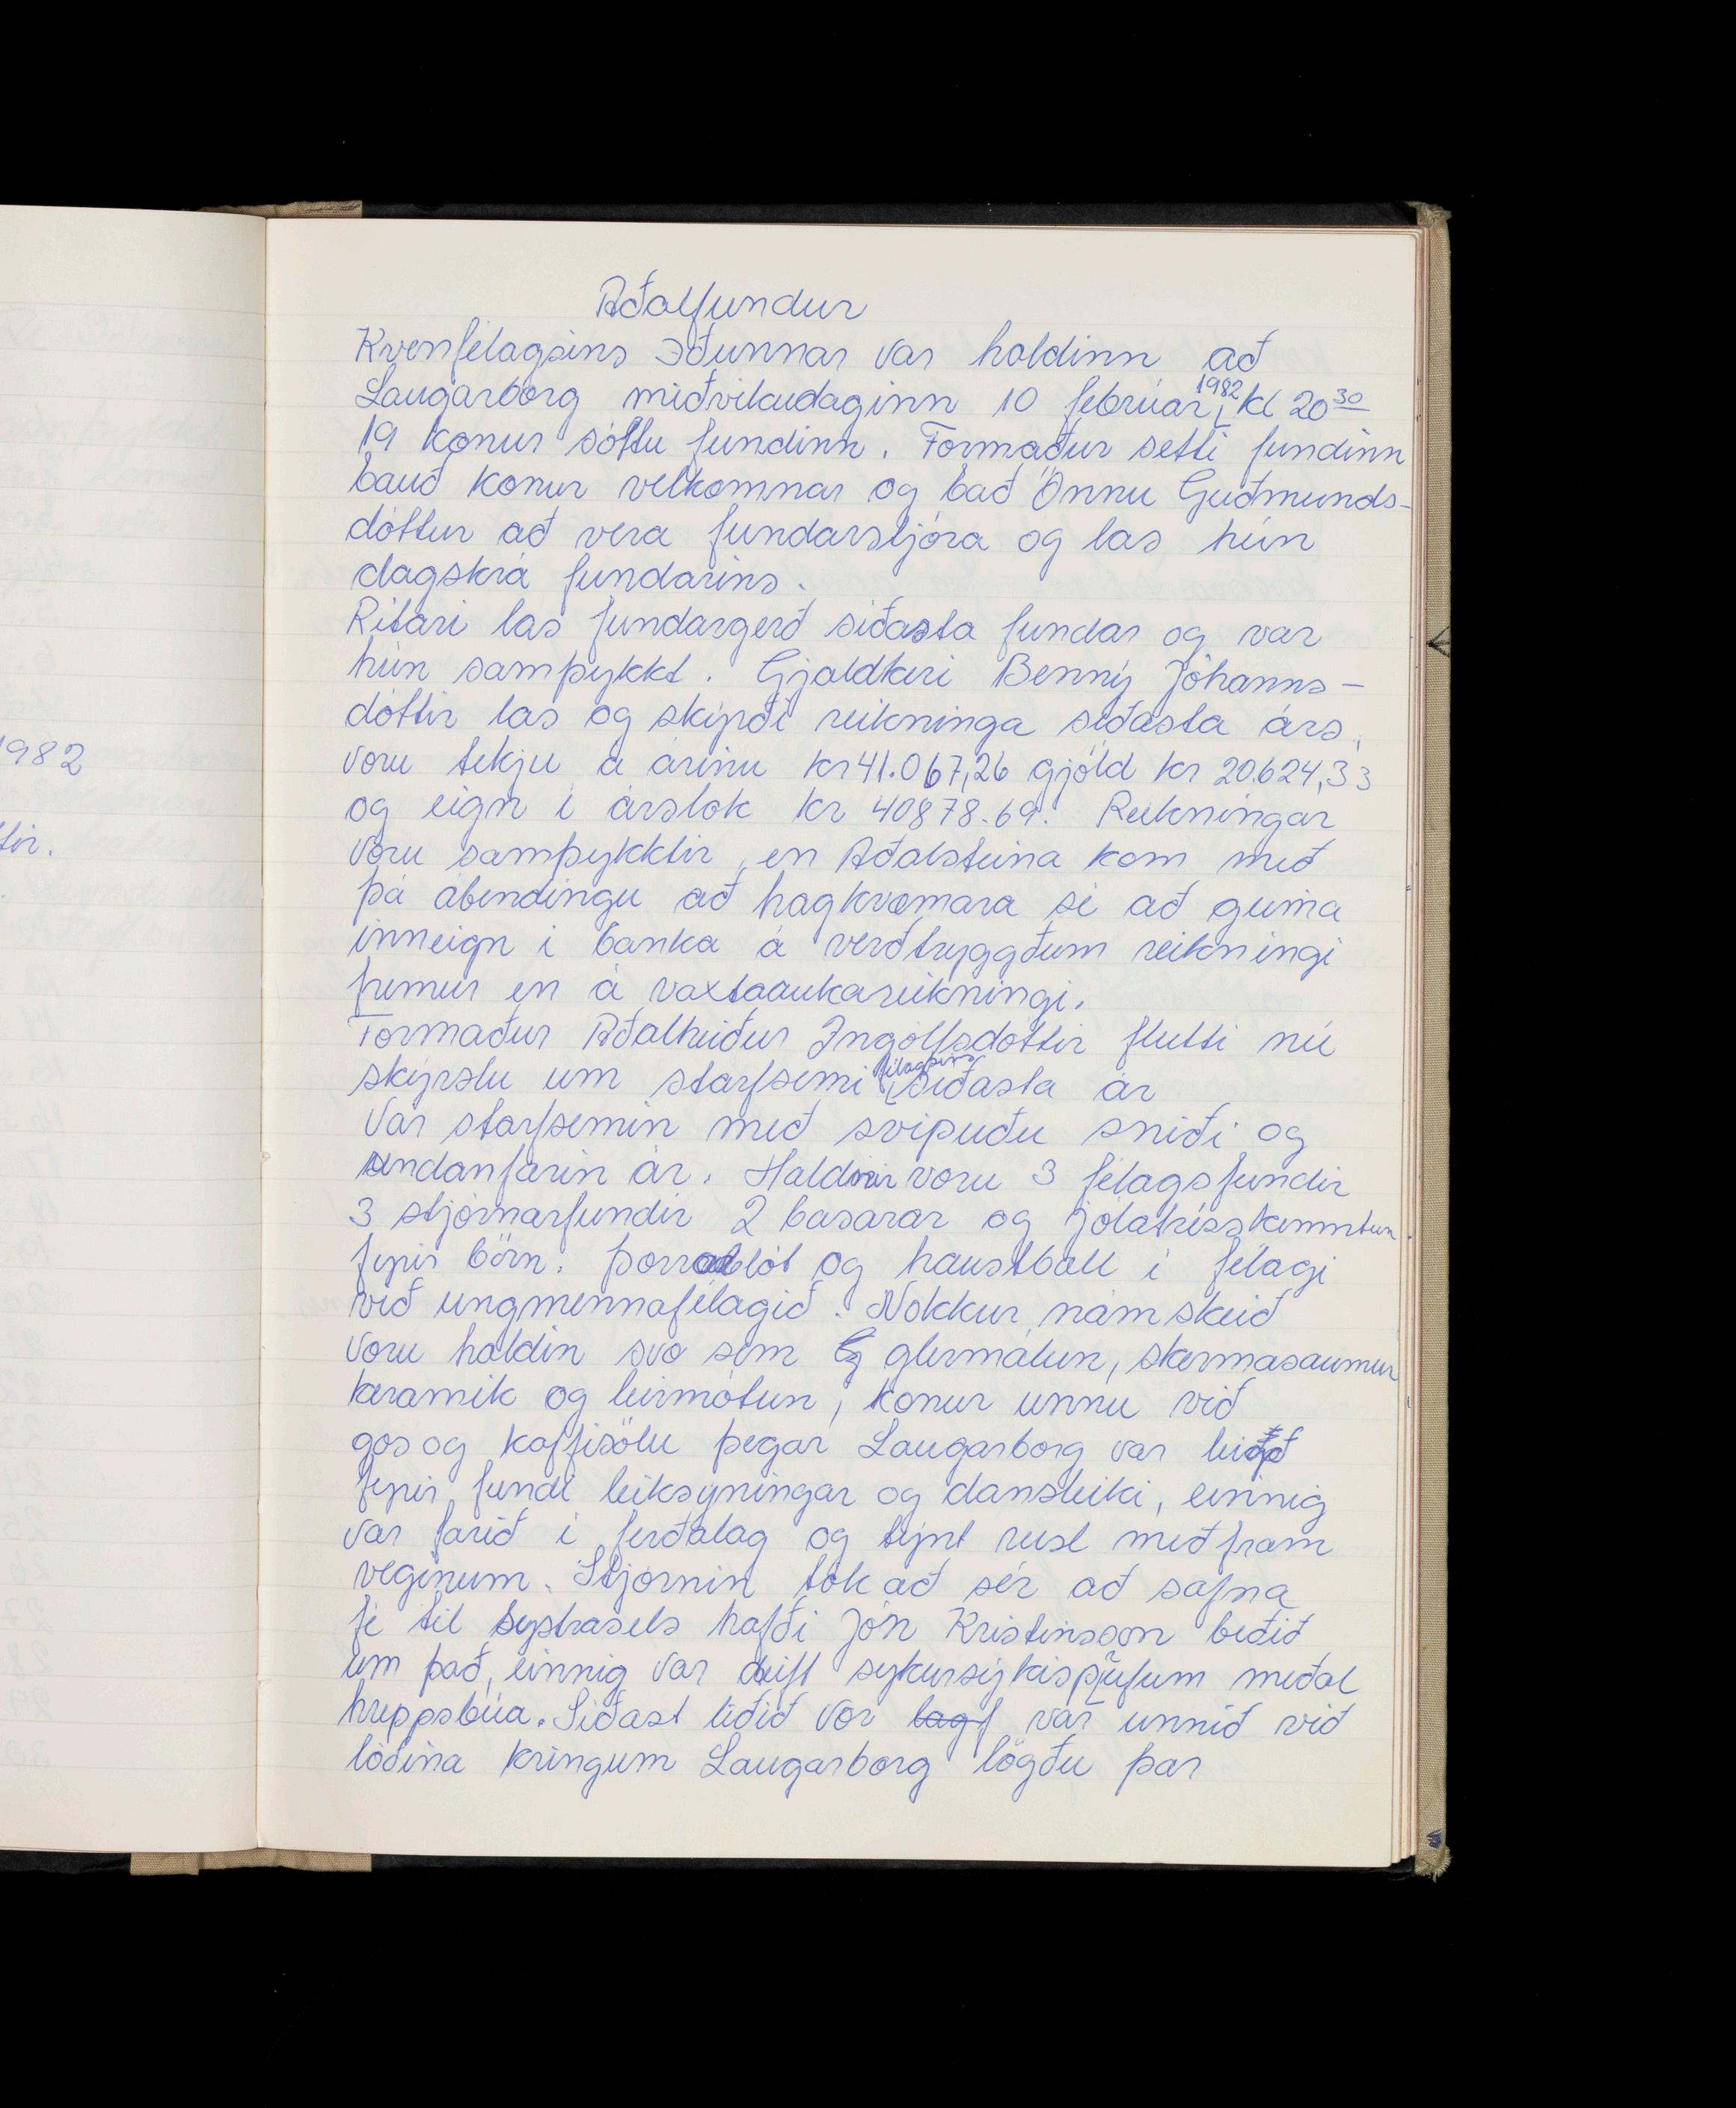 Aðalfundur
Kvenfélagsins Iðunnar var haldinn að
Laugarborg miðvikudaginn 10 febrúar, 1982 kl 20 30
19 konur sóttu fundinn. Formaður setti fundinn
bauð konur velkomnar og bað Önnu Guðmunds-
dóttur að vera fundarstjóra og las hún
dagskrá fundarins.
Ritari las fundargerð síðasta fundar og var
hún samþykkt. Gjaldkeri Benný Jóhanns-
dóttir las og skýrði reikninga síðasta árs,
voru tekju á árinu kr 41.067,26 gjöld kr 20.624,33
og eign í árslok kr 40878.69. Reikningar
voru samþykktir, en Aðalsteina kom með
þá ábendingu að hagkvæmara sé að geima
inneign í banka á verðtryggðum reikningi
fremur en á vaxtaaukareikningi.
Formaður Aðalheiður Ingólfsdóttir flutti nú
skýrslu um starfsemi félagsins síðasta ár
Var starfsemin með svipuðu sniði og
undanfarin ár. Haldnir voru 3 félagsfundir
3 stjórnarfundir 2 basarar og jólatrésskemmtun
fyrir börn. Þorrablót og haustball í félagi
við ungmennafélagið. Nokkur námskeið
voru haldin svo sem glermálun, skermasaumur
keramik og leirmótun, konur unnu við
gos og kaffisölu þegar Laugarborg var leigð
fyrir fundi leiksyningar og dansleiki, einnig
var farið í ferðalag og týnt rusl meðfram
veginum. Stjórnin tók að sér að safna
fé til Systrasels hafði Jón Kristinsson beðið
um það, einnig var dreift sykursýkisprufum meðal
hreppsbúa. Síðast liðið vor lagf var unnið við
lóðina kringum Laugarborg lögðu þar
1982
tir.